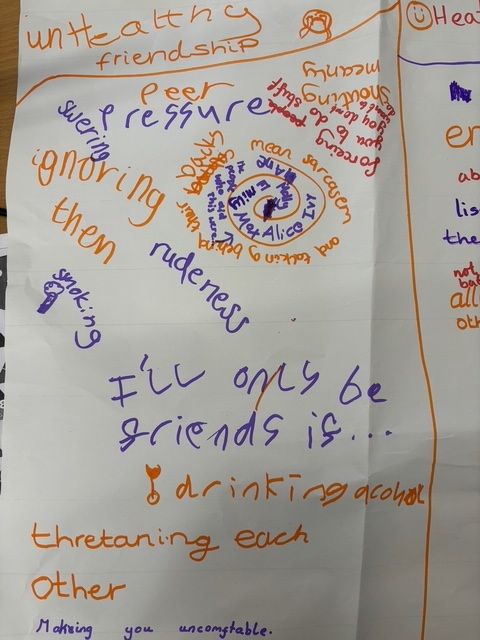 unHealthy
friendship
Hea
peer
pressure
swering
shouting
meanly
forcing people
you to do stuff
you dont
want to do
ignoring
then
mean sarcasem
and talking behind
their
Met Alice
Emily
Hello
rudeness
smoking
I'll only be
friends is...
drinking acohol
thretaning each
other
Making you uncomftable.
er
lis
the
not
all